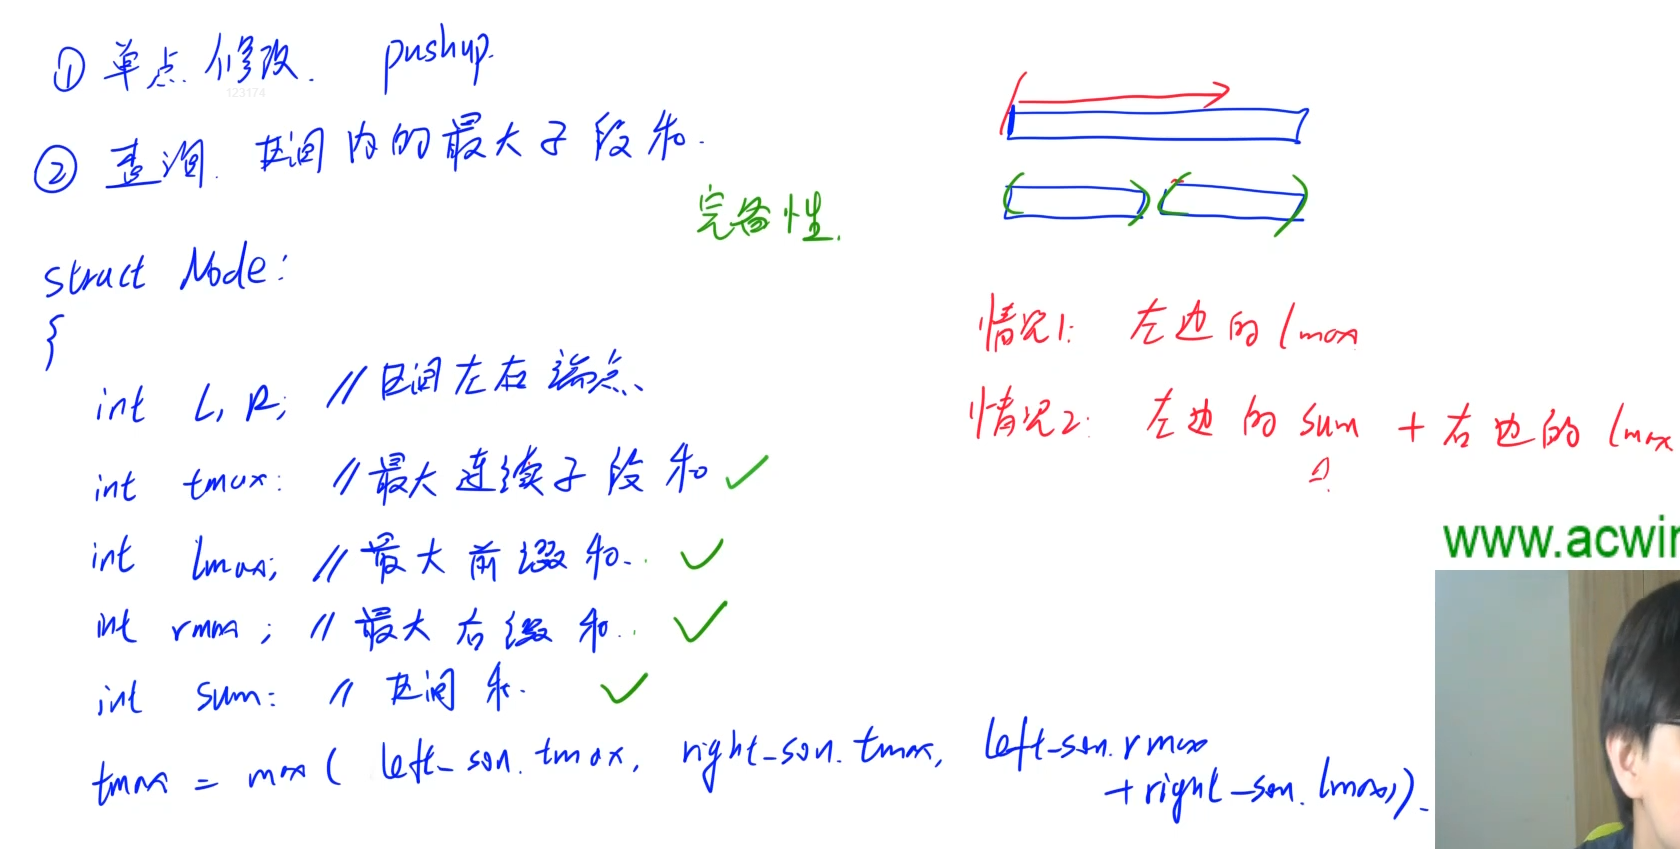 ① 单点修改. pushup.
123174
② 查询. 区间内的最大子段和.
完备性.
struct Node:
{
int L, R; //区间左右端点、
int tmax: //最大连续子段和
int lmax; //最大前缀和.
int rmax; //最大右缀和.
int sum: //区间和.
tmax = max( left_son.tmax, right_son.tmax, left_son.rmax
+right_son.lmax)).
情况1: 左边的lmax
情况2: 左边的sum + 右边的lmax
www.acwin